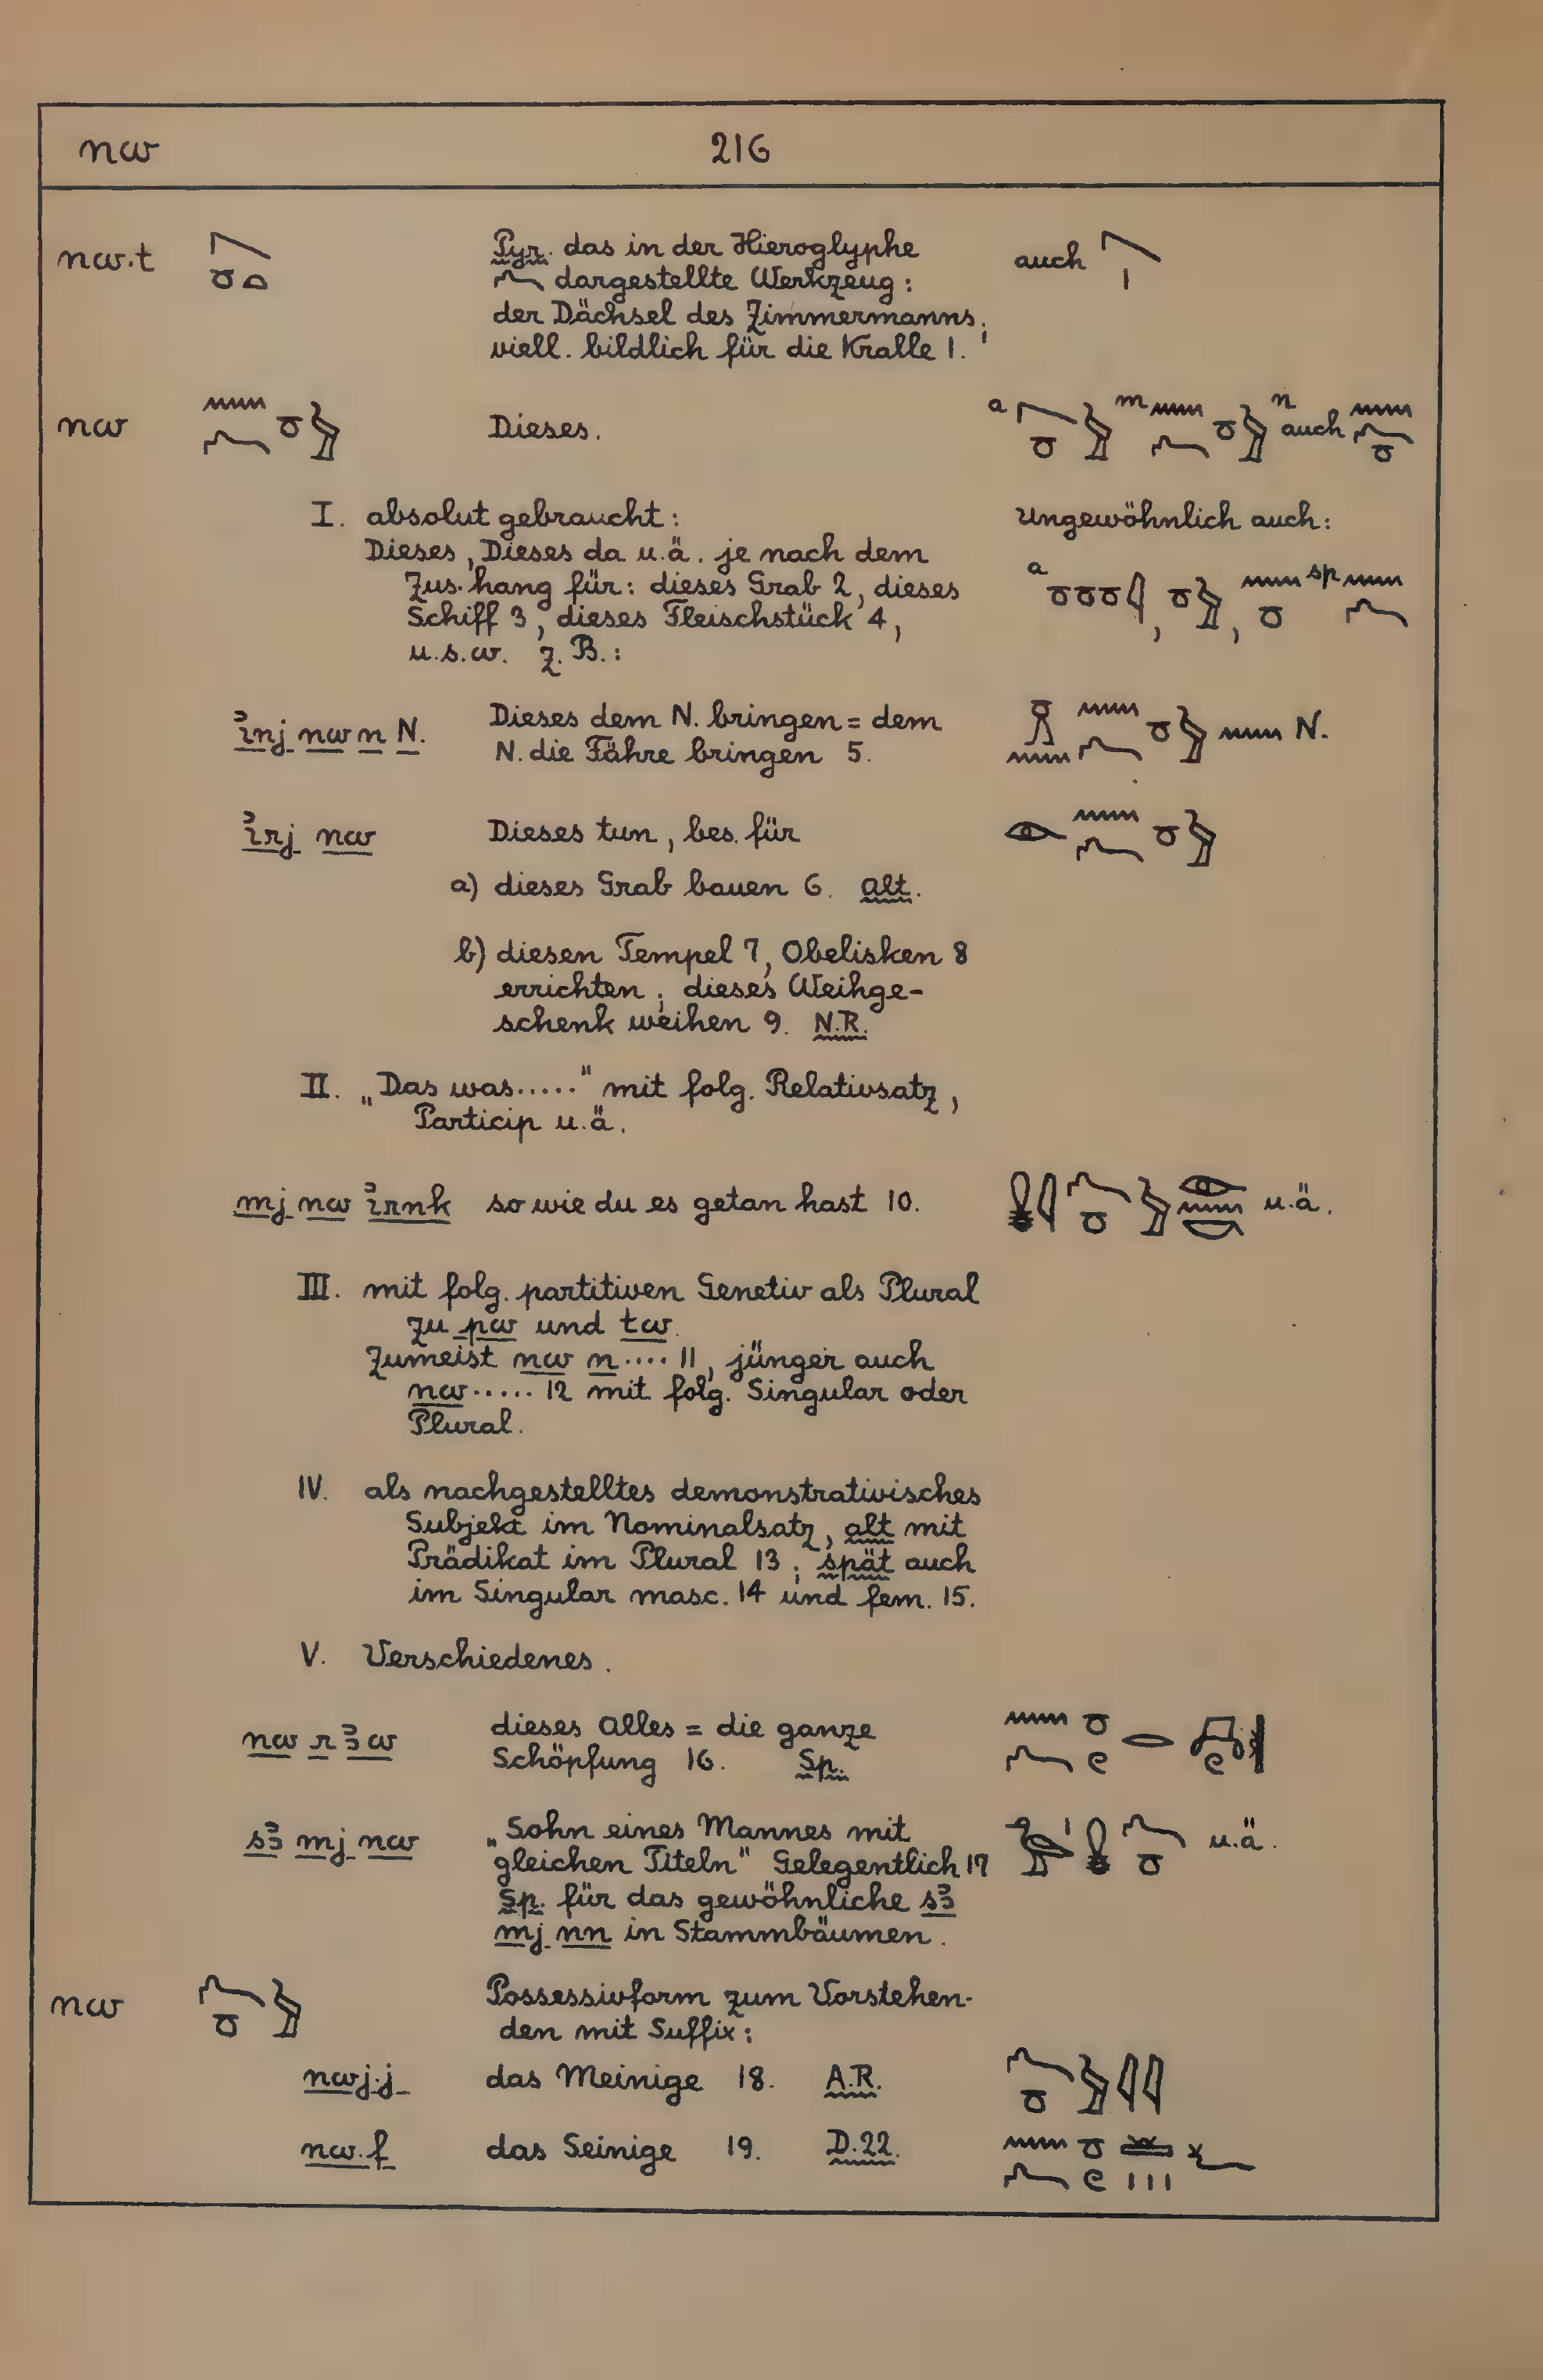 nw 216
nw.t Pyr. das in der Hieroglyphe auch
dargestellte Werkzeug:
der Dächsel des Zimmermanns;
viell. bildlich für die Kralle 1.
nw Dieses. a m n auch
I. absolut gebraucht: Ungewöhnlich auch:
Dieses, Dieses da u.ä. je nach dem
Zus.hang für: dieses Grab 2, dieses a , , sp
Schiff 3, dieses Fleischstück 4,
u.s.w. z.B.:
ỉnj nw n N. Dieses dem N. bringen = dem N.
N. die Fähre bringen 5.
ỉrj nw Dieses tun, bes. für
a) dieses Grab bauen 6. alt.
b) diesen Tempel 7, Obelisken 8
errichten; dieses Weihge-
schenk weihen 9. N.R.
II. „Das was....." mit folg. Relativsatz,
Particip u.ä.
mj nw ỉrnk so wie du es getan hast 10. u.ä.
III. mit folg. partitiven Genetiv als Plural
zu pw und tw.
Zumeist nw n.... 11, jünger auch
nw..... 12 mit folg. Singular oder
Plural.
IV. als nachgestelltes demonstrativisches
Subjekt im Nominalsatz, alt mit
Prädikat im Plural 13; spät auch
im Singular masc. 14 und fem. 15.
V. Verschiedenes.
nw r ꜣw dieses Alles = die ganze
Schöpfung 16. Sp.
sꜣ mj nw „Sohn eines Mannes mit u.ä.
gleichen Titeln" Gelegentlich 17
Sp. für das gewöhnliche sꜣ
mj nn in Stammbäumen.
nw Possessivform zum Vorstehen-
den mit Suffix:
nwj.j das Meinige 18. A.R.
nw.f das Seinige 19. D.22.